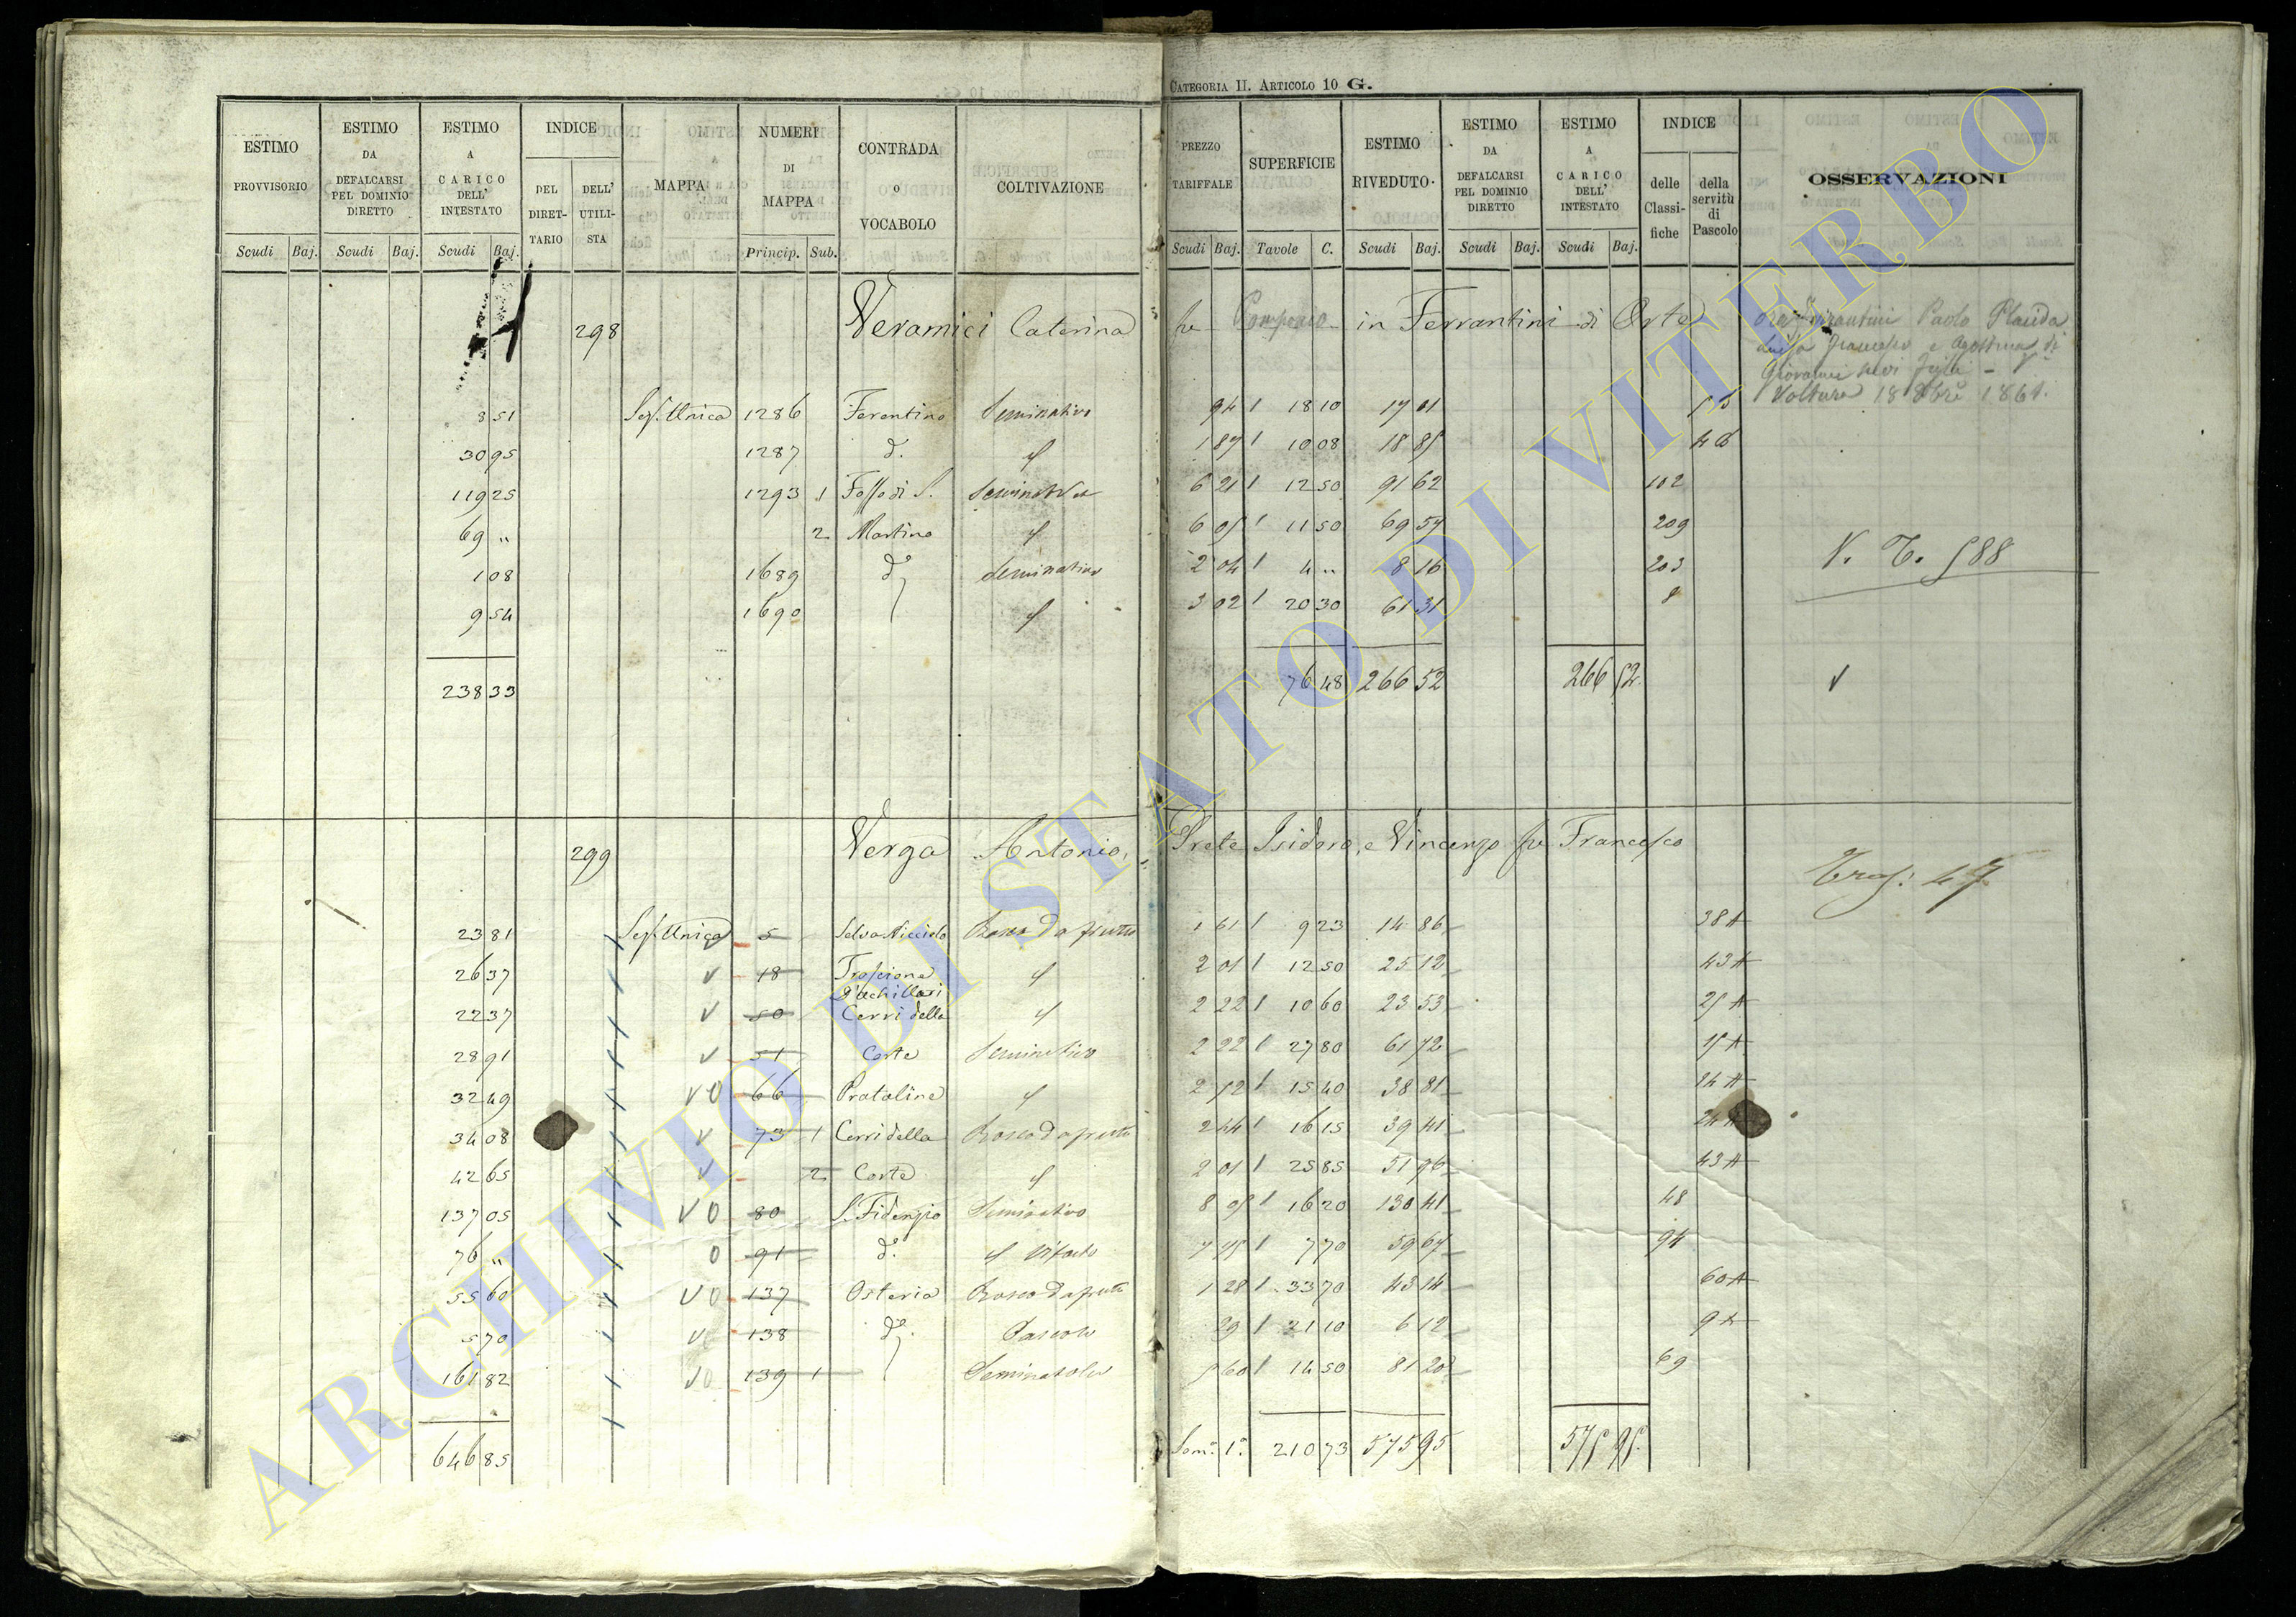 CATEGORIA II. ARTICOLO 10 G.
ESTIMO PROVVISORIO Scudi Baj.
ESTIMO DA DEFALCARSI PEL DOMINIO DIRETTO Scudi Baj.
ESTIMO A CARICO DELL' INTESTATO Scudi Baj.
INDICE DEL DIRETTARIO DELL' UTILISTA
MAPPA
NUMERI DI MAPPA Princip. Sub.
CONTRADA o VOCABOLO
COLTIVAZIONE
PREZZO TARIFFALE Scudi Baj.
SUPERFICIE Tavole C.
ESTIMO RIVEDUTO Scudi Baj.
ESTIMO DA DEFALCARSI PEL DOMINIO DIRETTO Scudi Baj.
ESTIMO A CARICO DELL' INTESTATO Scudi Baj.
INDICE delle Classifiche della servitù di Pascolo
OSSERVAZIONI
298 Veramici Caterina fu in Ferrantini di Orte
Paolo Placida
Francesco e Agostina di
Giovanni
Voltura 18 8bre 1861.
8 51 Sez. Unica 1286 Ferentino Seminativo 94 18 10 17 01
30 95 1287 d. 1 87 10 08 18 85 46
119 25 1293 1 Fosso di S. 6 21 12 50 91 62 102
69 " 2 Martino 6 05 11 50 69 57 209
1 08 1689 do Seminativo 2 04 4 " 8 16 203
9 54 1690 3 02 20 30 61 31
V. T. 588
238 33 76 48 266 52 266 52
299 Verga Antonio, Prete Isidoro, e Vincenzo fu Francesco
Tras: 47
23 81 Sez. Unica 5 Bosco da frutto 1 61 9 23 14 86 38 A
26 37 18 Troscione 2 01 12 50 25 12 43 A
d'Achillari
22 37 50 Cerri della 2 22 10 60 23 53 25 A
28 91 51 Corte Seminativo 2 22 27 80 61 72 15 A
32 49 66 Pratoline 2 52 15 40 38 81 14 A
34 08 73 1 Cerri della Bosco da frutto 2 44 16 15 39 41 24 A
42 65 2 Corte 2 01 25 85 51 96 43 A
137 05 80 S. Fidenzio Seminativo 8 05 16 20 130 41 48
76 " 91 do. Vitato 7 75 7 70 59 67 94
55 60 137 Osteria Bosco da frutto 1 28 33 70 43 14 60 A
5 70 138 do. Pascolo 29 21 10 6 12 9 A
161 82 139 1 5 60 14 50 81 20 69
646 85 Soma 1a. 210 73 575 95 575 95
ARCHIVIO DI STATO DI VITERBO